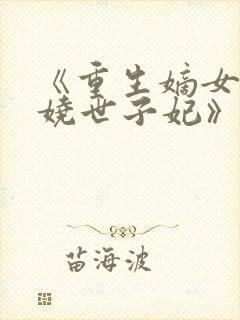 《重生嫡女
娆世子妃》
苗海波